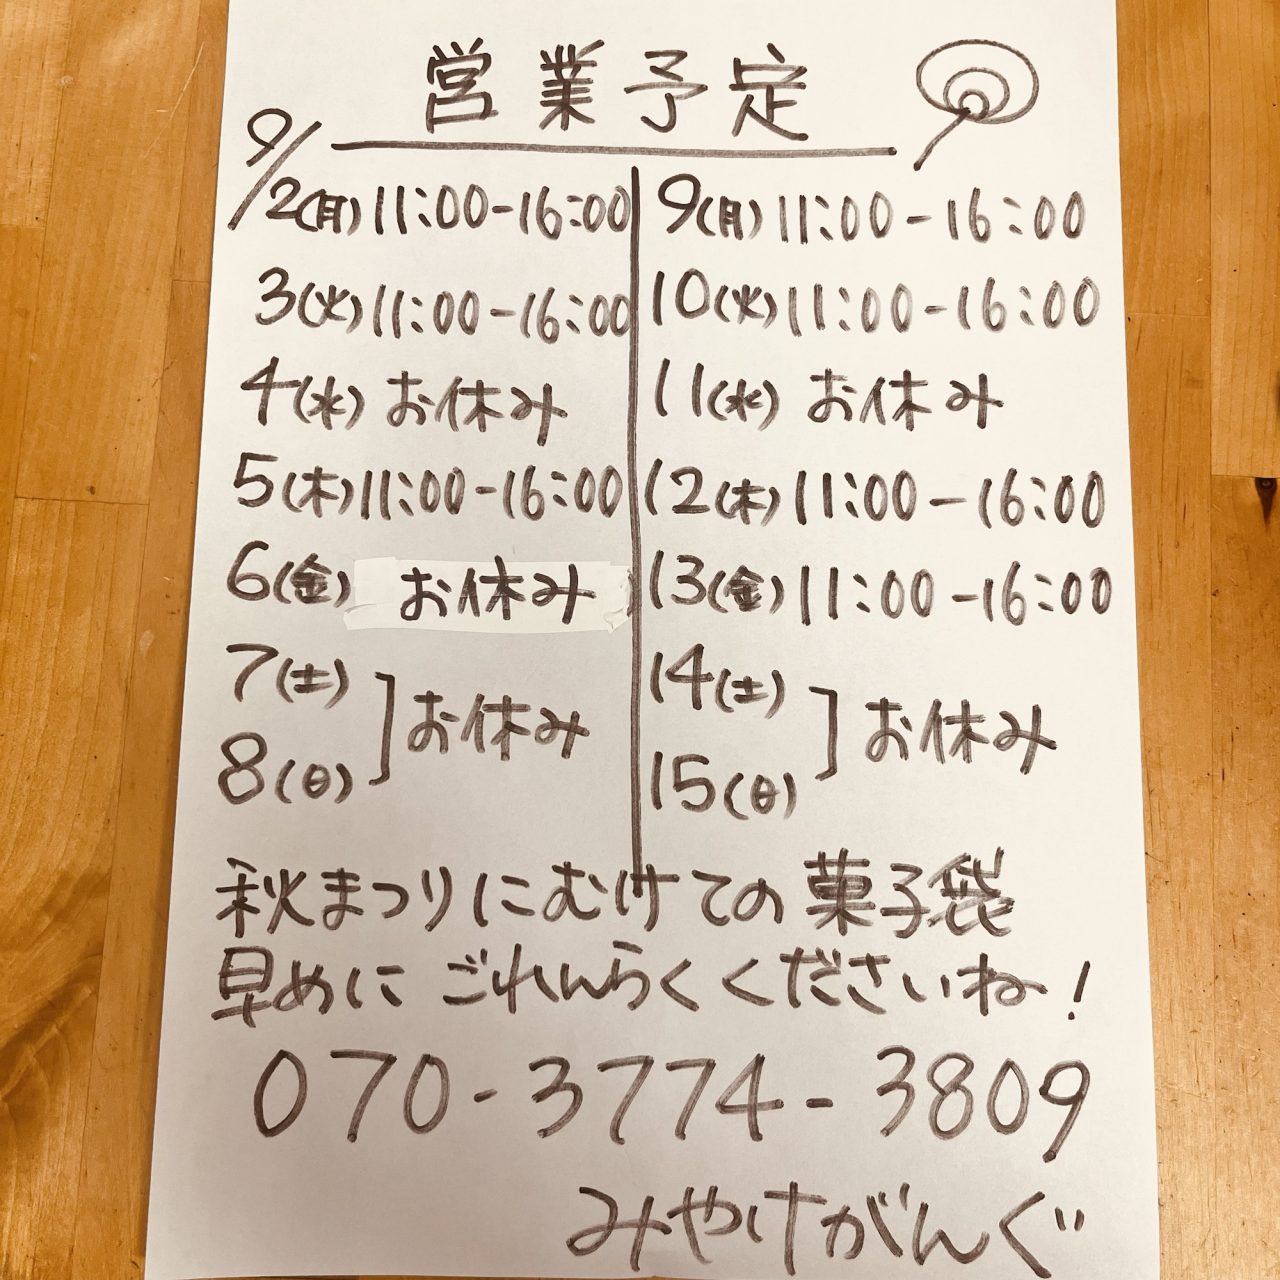 営業予定
9/2(月)11:00-16:00
3(火)11:00-16:00
4(水)お休み
5(木)11:00-16:00
6(金)お休み
7(土)
8(日)
]お休み
9(月)11:00-16:00
10(火)11:00-16:00
11(水)お休み
12(木)11:00-16:00
13(金)11:00-16:00
14(土)
15(日)
]お休み
秋まつりにむけての菓子袋
早めにごれんらくくださいね!
070-3774-3809
みやけがんぐ